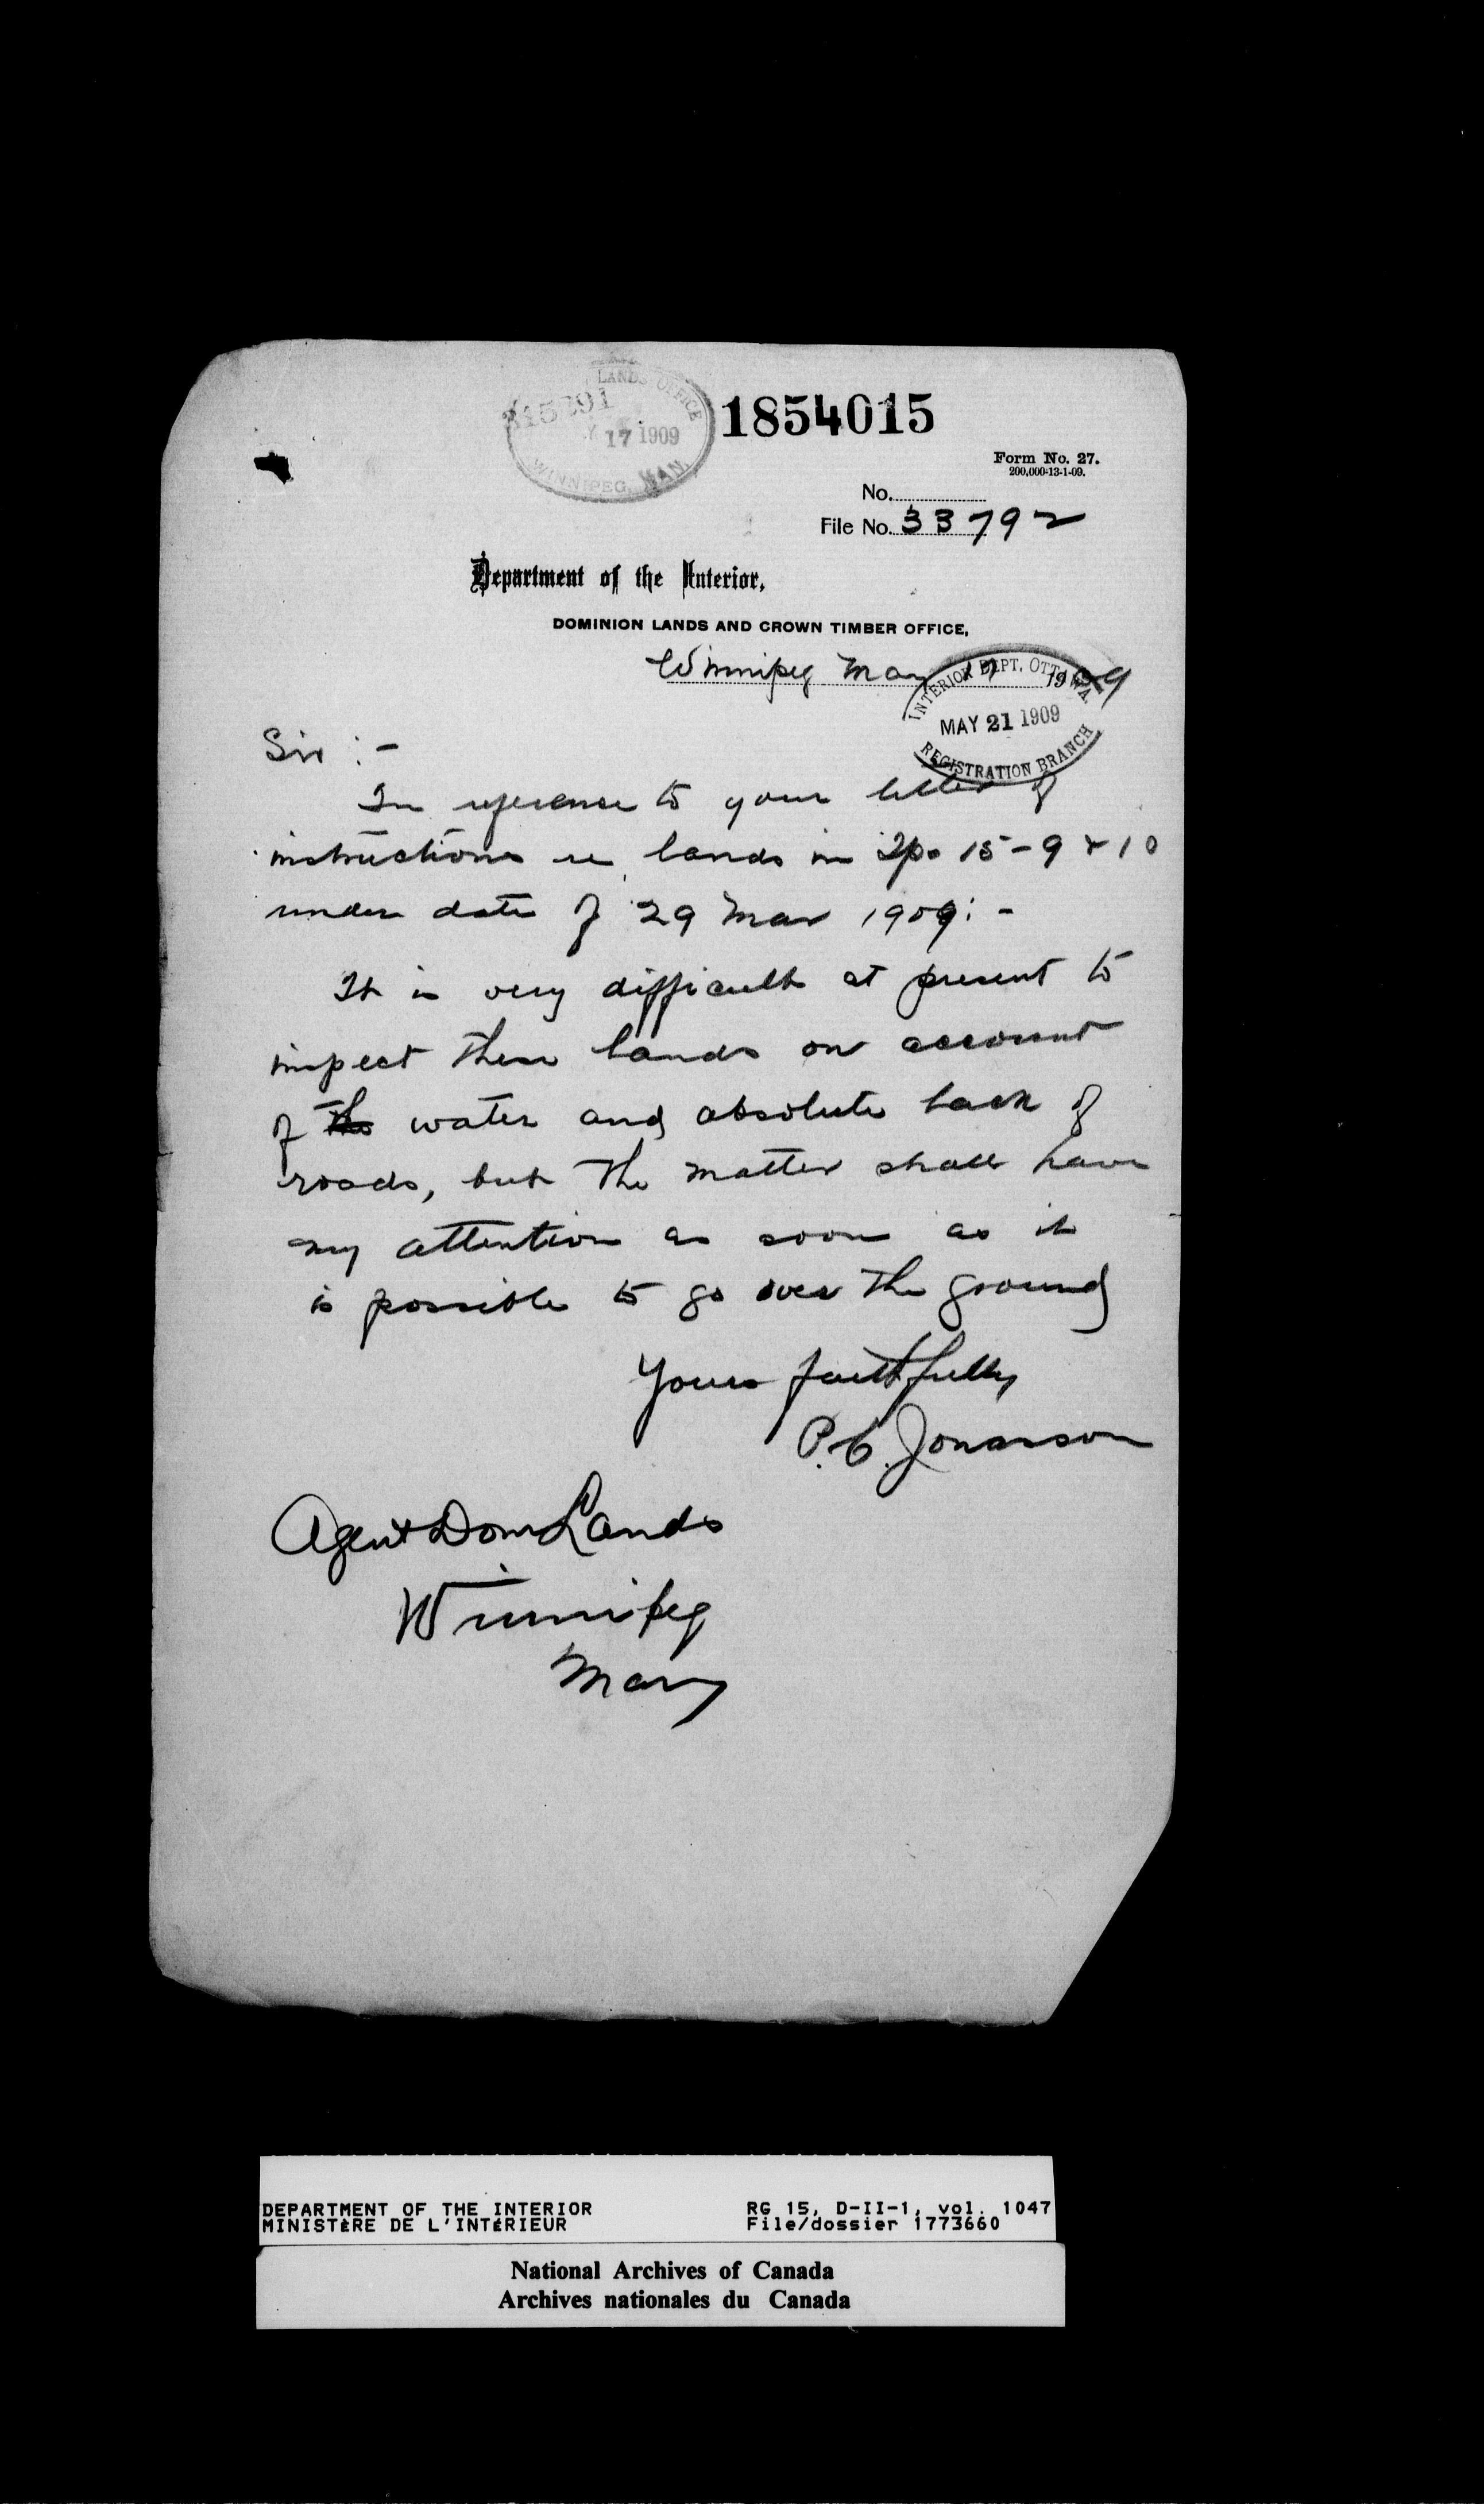 LANDS OFFICE
17 1909
WINNIPEG, MAN.
1854015
Form No. 27.
200,000-13-1-09.
No.
File No. 33792
Department of the Interior,
DOMINION LANDS AND CROWN TIMBER OFFICE,
Winnipeg May 17 1909
INTERIOR DEPT. OTTAWA.
MAY 21 1909
REGISTRATION BRANCH
Sir :-
In reference to your letter of
instructions re lands in Tp. 15-9 & 10
under date of 29 Mar 1909:-
It is very difficult at present to
inspect these lands on account
of the water and absolute lack of
roads, but the matter shall have
my attention as soon as it
is possible to go over the ground
Yours faithfully
P.C. Jonasson
Agent Dom Lands
Winnipeg
Man
DEPARTMENT OF THE INTERIOR RG 15, D-II-1, vol. 1047
MINISTÈRE DE L'INTÉRIEUR File/dossier 1773660
National Archives of Canada
Archives nationales du Canada